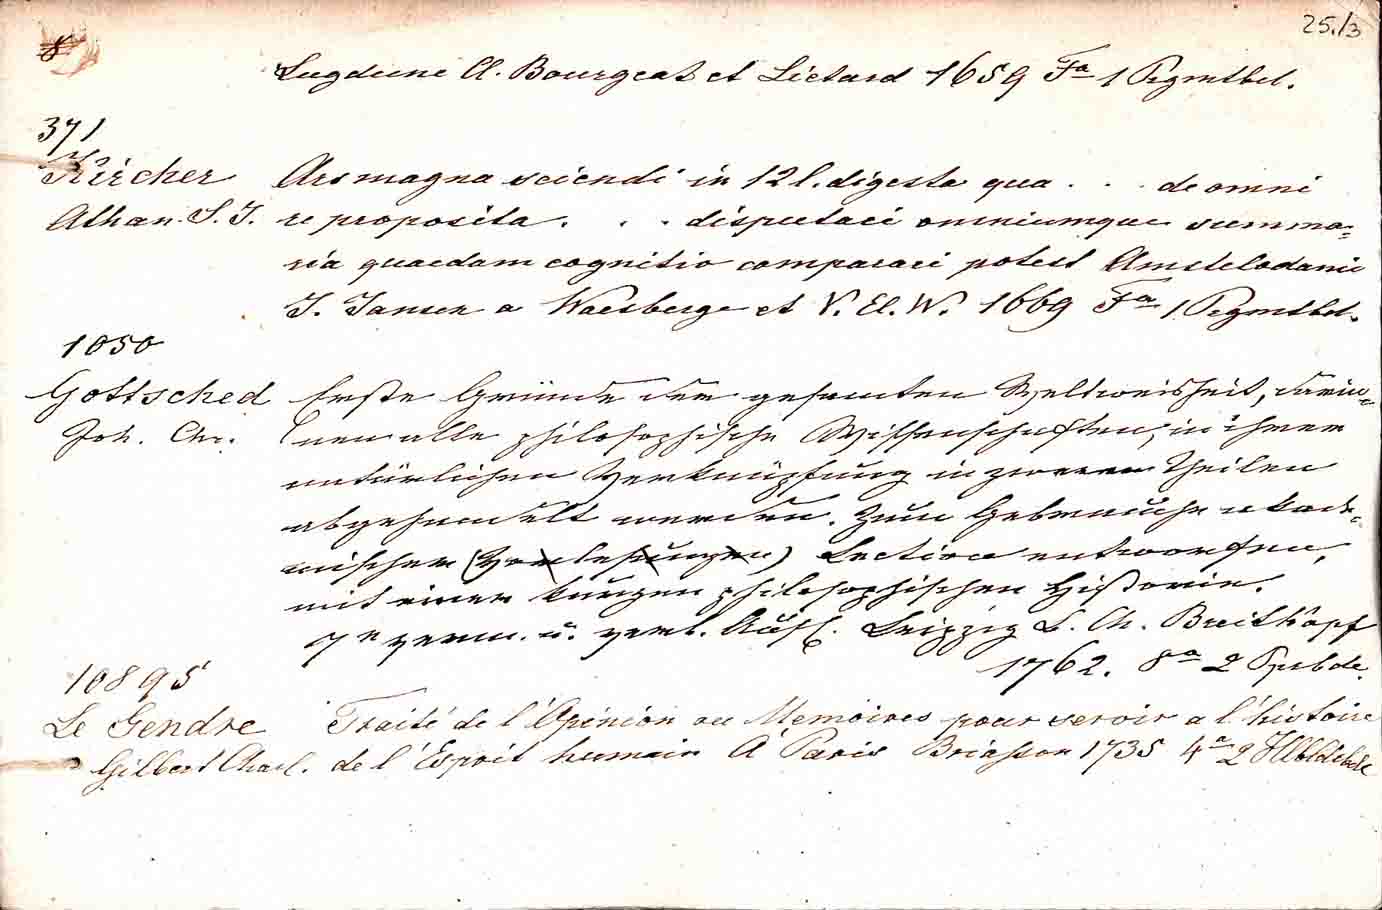 25./3
8
Lugduni Cl. Bourgeat et Liétard 1659 Fᵃ 1 Prgmtbd.
371
Kircher Ars magna sciendi in 12 l. digesta qua . . . de omni
Athan. S. J. re proposita . . . disputari omniumque summa=
ria quaedam cognitio comparari potest Amstelodami
J. Jansen a Waesberge et V. El. W. 1669 Fᵃ 1 Prgmtbd.
1050
Gottsched Erste Gründe der gesamten Weltweisheit, darin=
Joh. Chr. nen alle philosophische Wissenschaften, in ihrer
natürlichen Verknüpfung in zween Theilen
abgehandelt werden. Zum Gebrauche akade=
mischer (Vorlesungen) Lection entworfen,
mit einer kurzen philosophischen Historie.
7ᵉ verm. u. verb. Aufl. Leipzig B. Ch. Breitkopf
1762. 8ᵃ 2 Ppbde.
10895
Le Gendre Traité de l'Opinion ou Memoires pour servir a l'histoire
Gilbert Charl. de l'Esprit humain A Paris Briasson 1735 4ᵃ 2 Hbldrbde